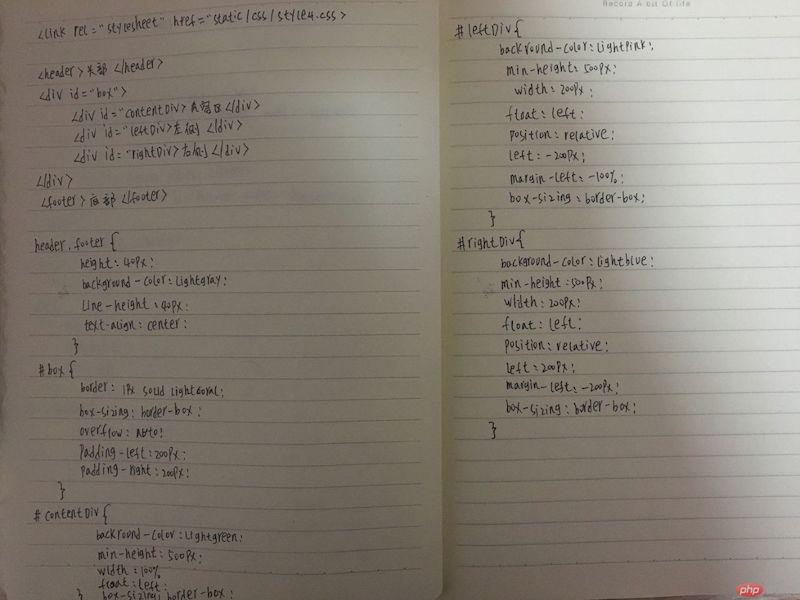 <link rel="stylesheet" href="static/css/style4.css>
<header>头部</header>
<div id="box">
<div id="contentDiv>内容区</div>
<div id="leftDiv>左侧</div>
<div id="rightDiv>右侧</div>
</div>
<footer>底部</footer>
header,footer{
height:40px;
background-color:lightgray;
line-height:40px;
text-align:center;
}
#box{
border:1px solid lightcoral;
box-sizing:border-box;
overflow:auto;
padding-left:200px;
padding-right:200px;
}
#contentDiv{
backround-color:lightgreen;
min-height:500px;
width:100%
float:left;
box-sizing:border-box;
}
Record A bit Of life
#leftDiv{
background-color:lightpink;
min-height:500px;
width:200px;
float:left;
position:relative;
left:-200px;
margin-left:-100%;
box-sizing:border-box;
}
#rightDiv{
background-color:lightblue;
min-height:500px;
width:200px;
float:left;
position:relative;
left:200px;
margin-left:-200px;
box-sizing:border-box;
}
php